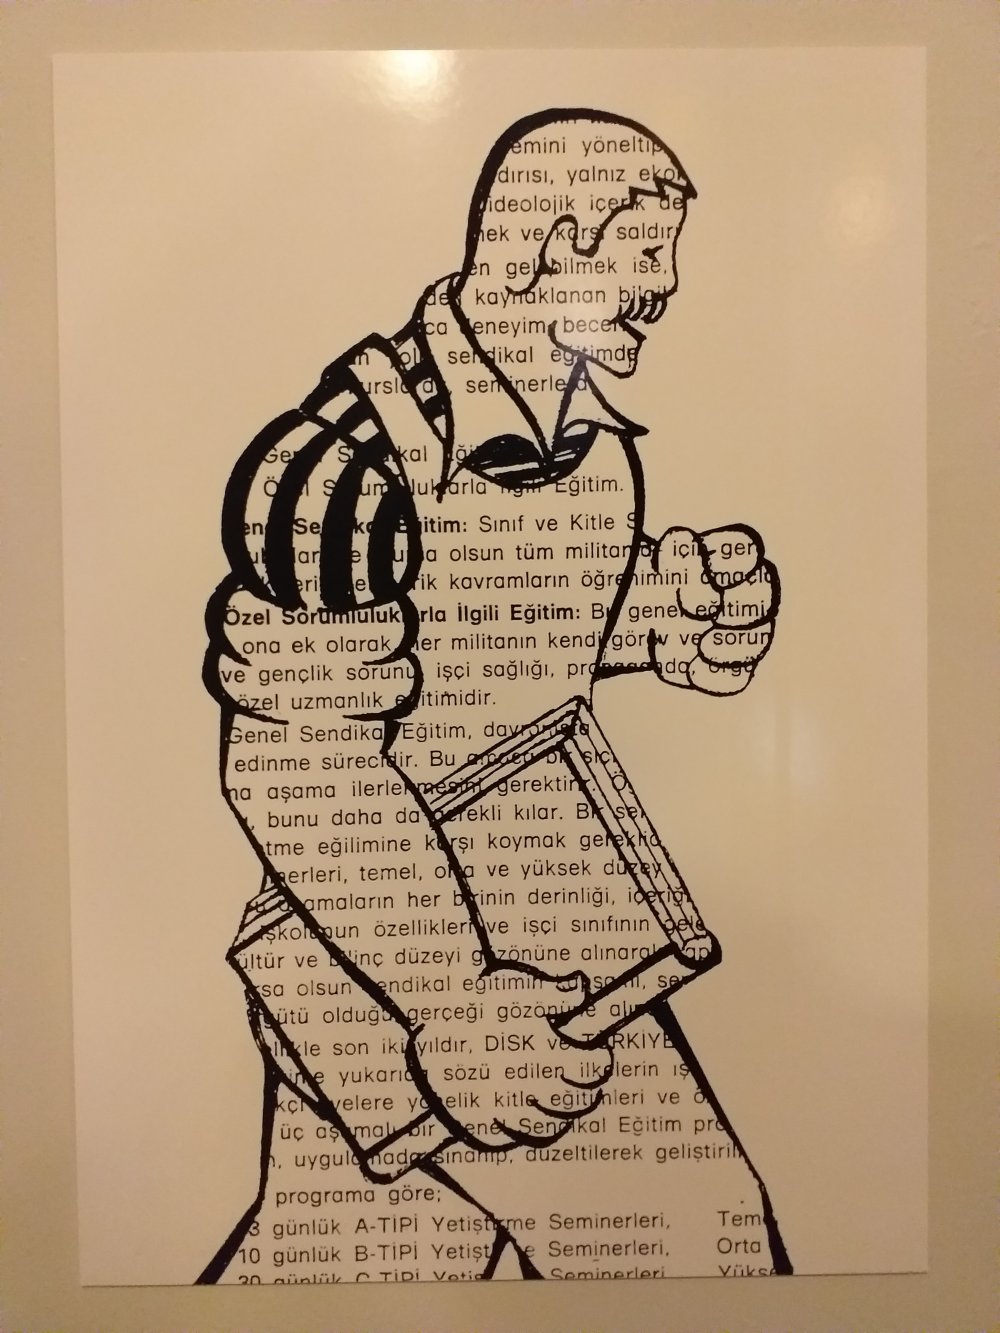 emini yöneltip
dırısı, yalnız eko
ideolojik içerik de
ek ve karşı saldırı
en gelebilmek ise,
den kaynaklanan bilgi
ca deneyim, becer
sendikal eğitimde
kurslarda, seminerlerd
Genel Sendikal Eği
Özel Sorumluluklarla İlgili Eğitim.
Genel Sendikal Eğitim: Sınıf ve Kitle S
olsun tüm militanlar için ger
kavramların öğrenimini amaçla
Özel Sorumluluklarla İlgili Eğitim: Bu genel eğitimi
ona ek olarak, her militanın kendi görev ve sorum
ve gençlik sorunu, işçi sağlığı, propaganda, örgü
özel uzmanlık eğitimidir.
Genel Sendikal Eğitim, davranışta
edinme sürecidir. Bu amaca bir sıç
ma aşama ilerlenmesini gerektirir. Öz
bunu daha da gerekli kılar. Bir sen
tme eğilimine karşı koymak gereklid
nerleri, temel, orta ve yüksek düzey
aşamaların her birinin derinliği, içeriği
işkolunun özellikleri ve işçi sınıfının gele
ültür ve bilinç düzeyi gözönüne alınarak yap
rsa olsun sendikal eğitimin kapsamı, se
gütü olduğu gerçeği gözönüne alın
llikle son iki yıldır, DİSK ve TÜRKİYE
yukarıda sözü edilen ilkelerin ış
kçi üyelere yönelik kitle eğitimleri ve ö
üç aşamalı bir Genel Sendikal Eğitim pro
n, uygulamada sınanıp, düzeltilerek geliştiril
programa göre;
3 günlük A-TİPİ Yetiştirme Seminerleri, Teme
10 günlük B-TİPİ Yetiştirme Seminerleri, Orta
30 günlük C-TİPİ Yetiş Seminerleri Yükse